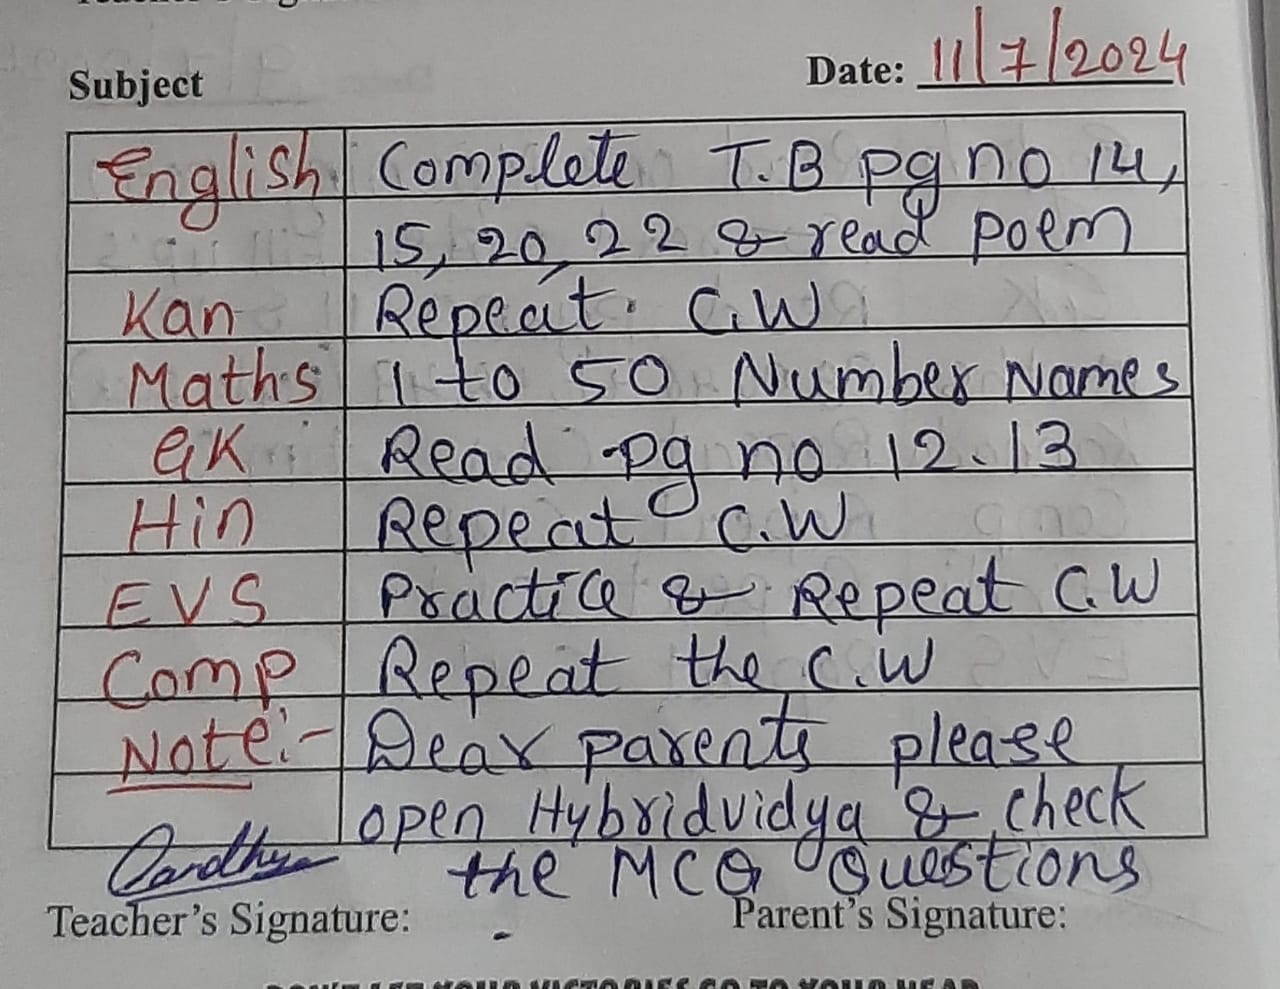 Date: 11/7/2024
Subject
English Complete T.B pg no 14,
15, 20, 22 & read poem
Kan Repeat C.W
Maths 1 to 50 Number Names
GK Read pg no 12.13
Hin Repeat C.W
EVS Practice & Repeat C.W
Comp Repeat the C.W
Note:- Dear parents please
open Hybridvidya & check
the MCQ Questions
Teacher's Signature: Parent's Signature: